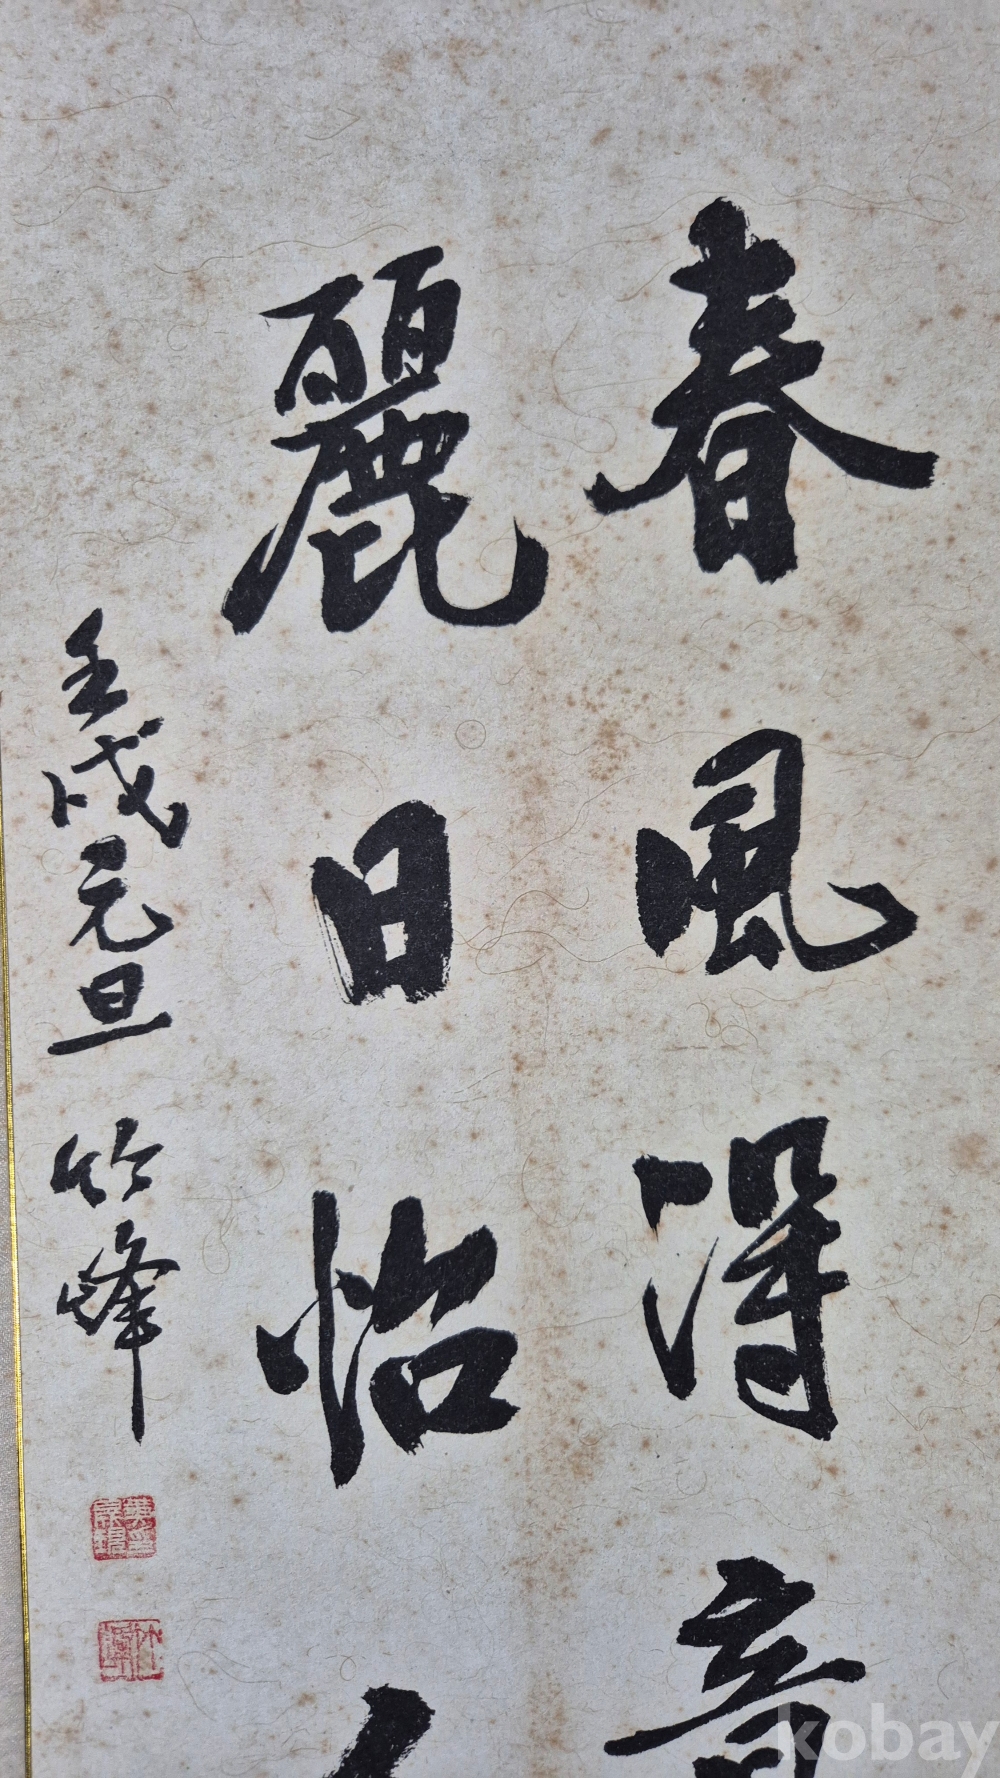 春風得意
麗日怡人
壬戌元旦 竹峰
kobay